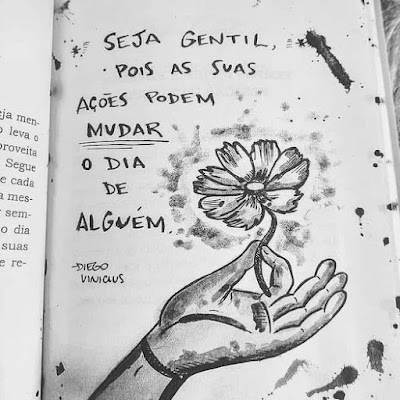 SEJA GENTIL,
POIS AS SUAS
AÇÕES PODEM
MUDAR
O DIA
DE
ALGUÉM.
-DIEGO
VINICIUS
eja men-
o leva o
proveita
Segue
e cada
a mes-
r sem-
o dia
suas
e re-